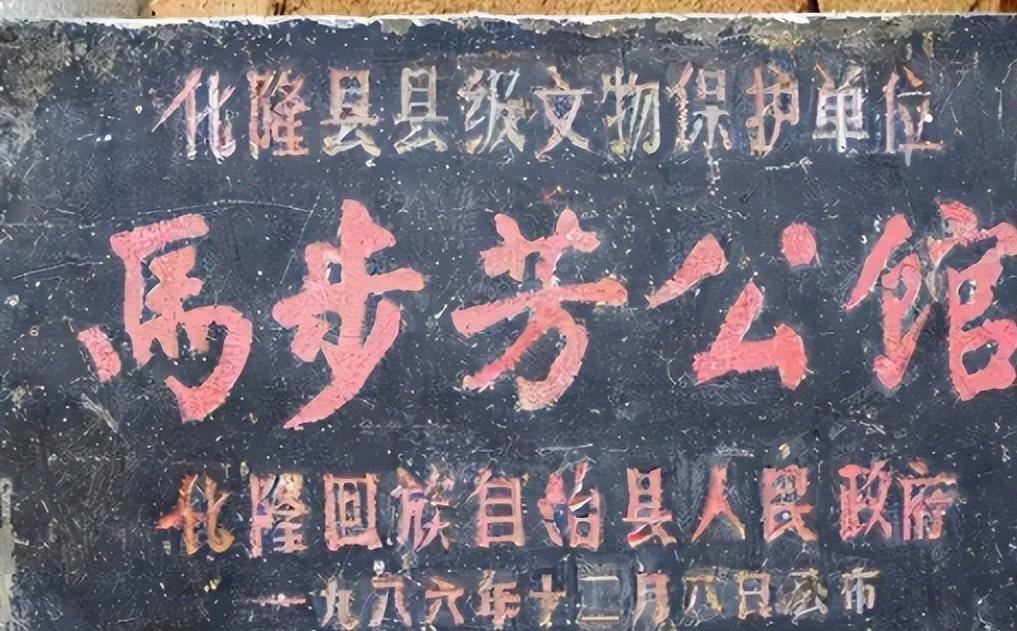 化隆县县级文物保护单位
馬步芳公馆
化隆回族自治县人民政府
一九八六年十二月八日公布